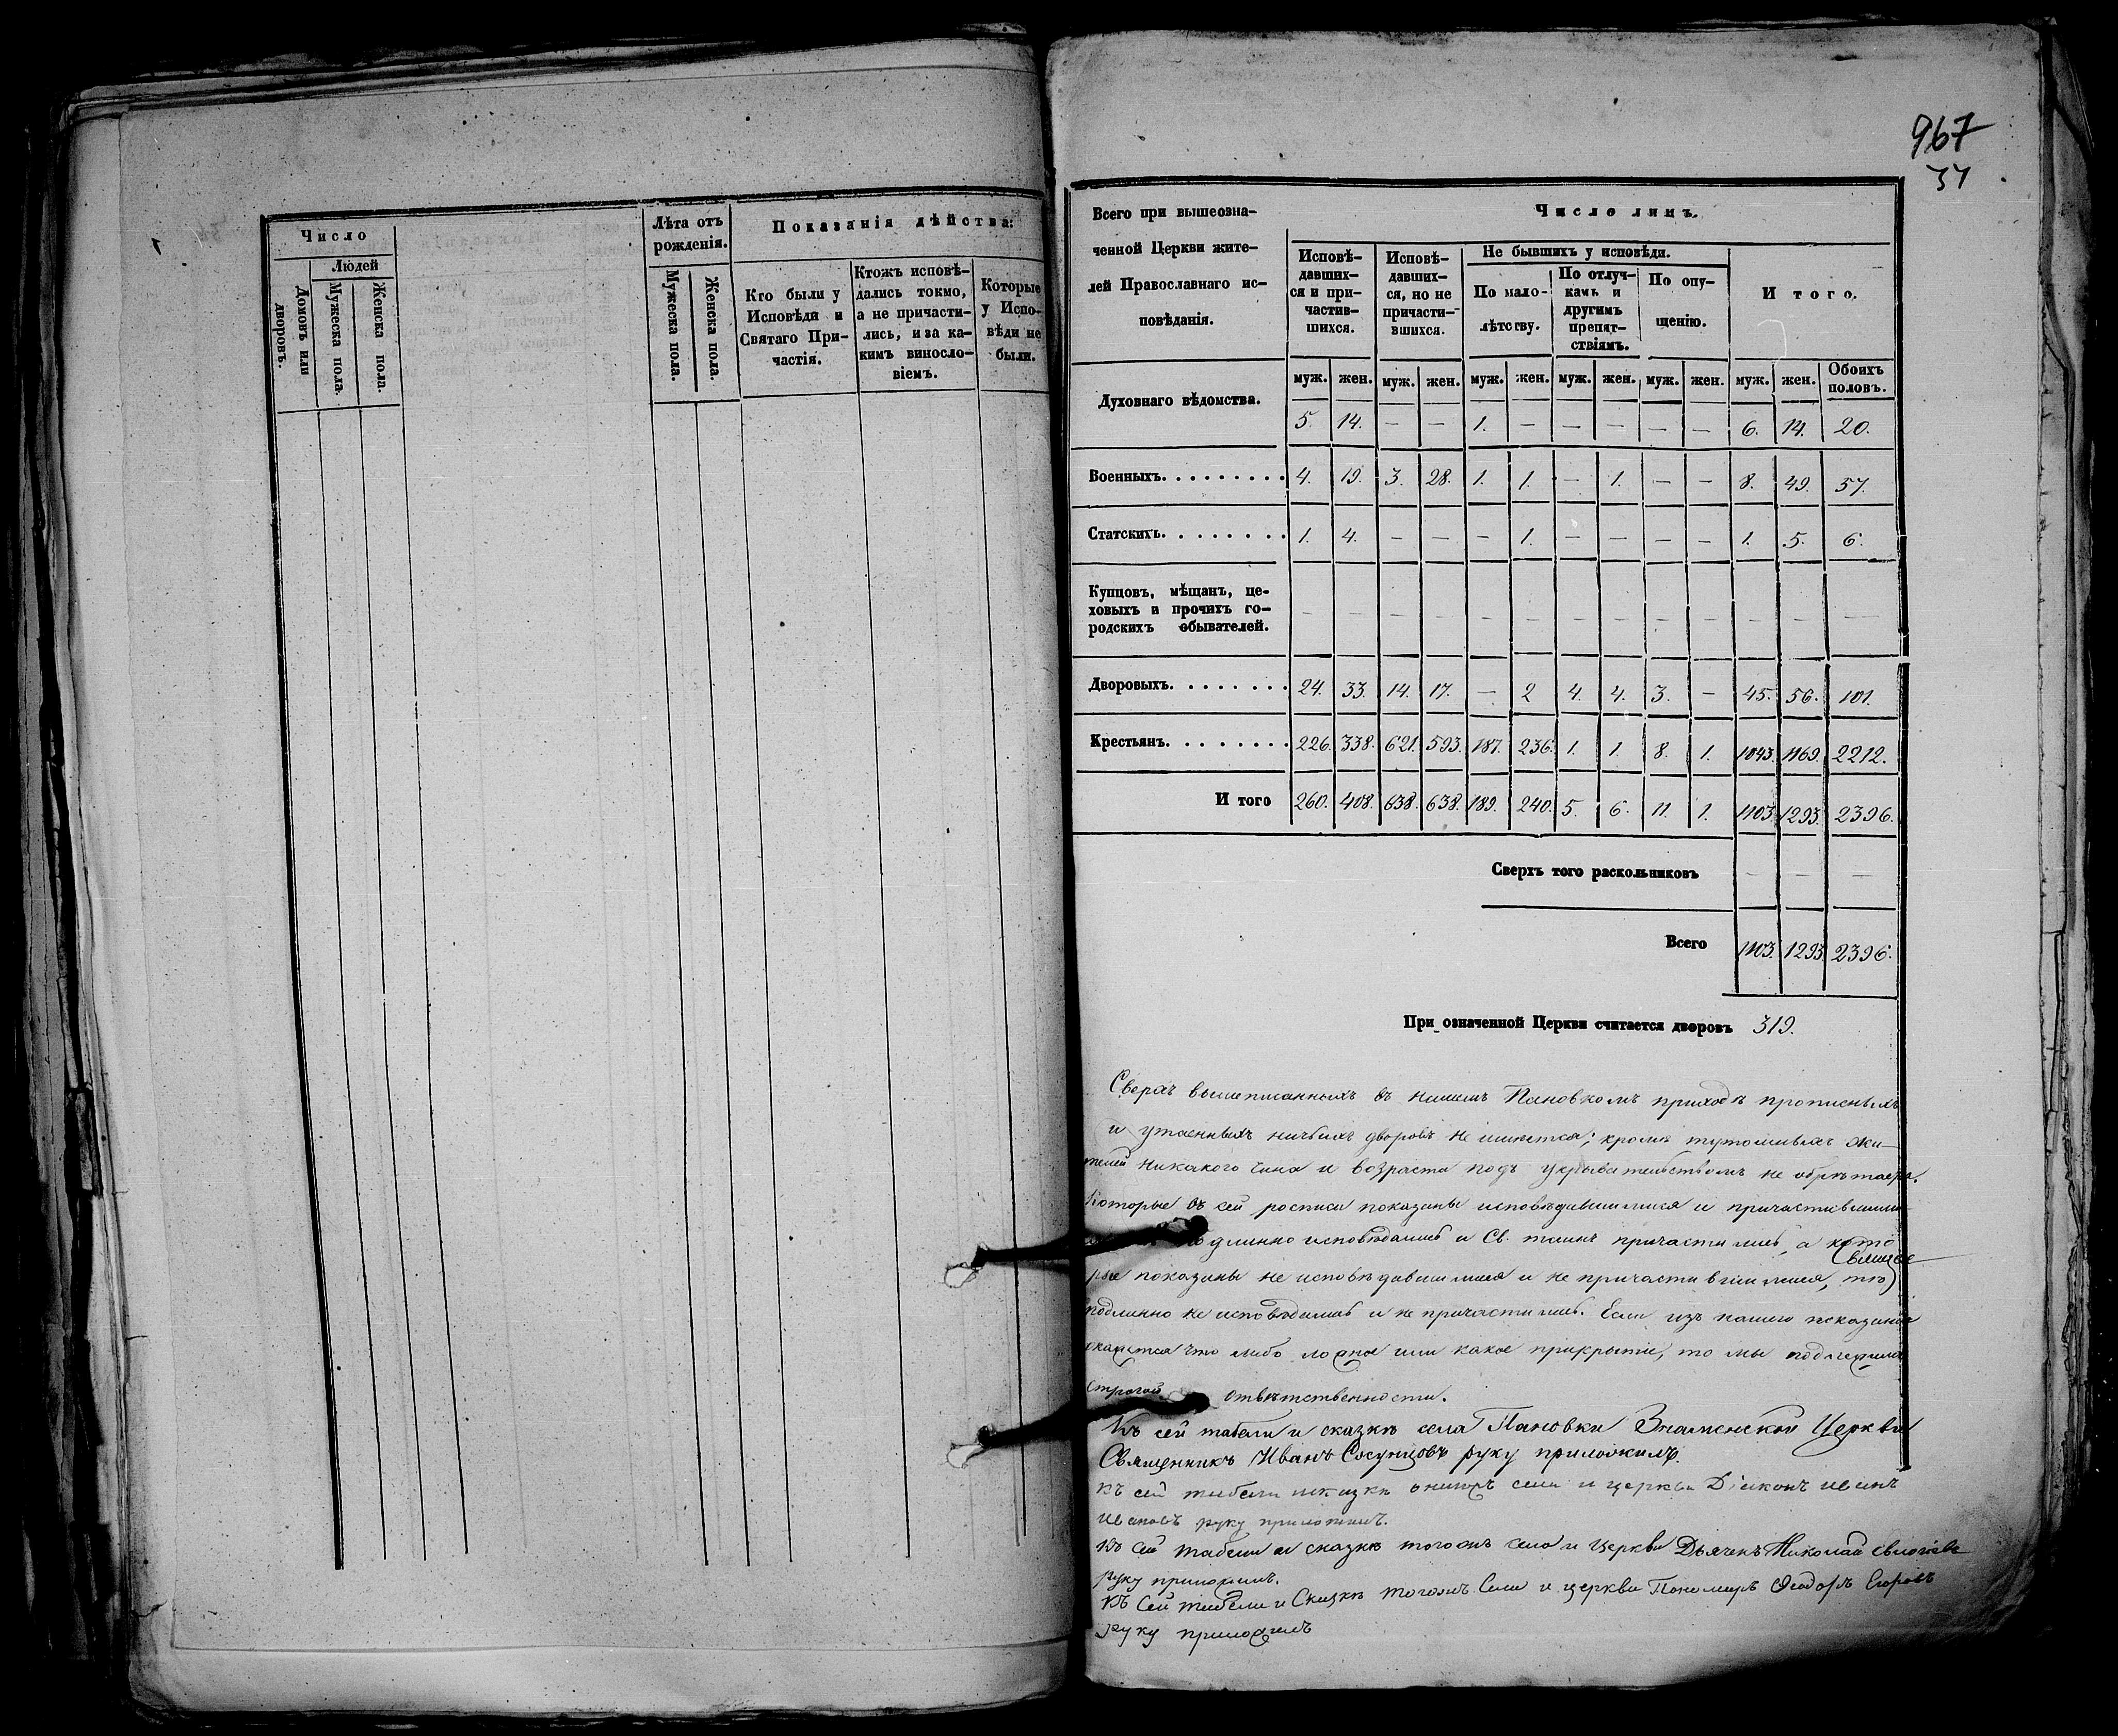 Число
Людей
Домовъ или дворовъ.
Мужеска пола.
Женска пола.
Лѣта отъ рожденія.
Мужеска пола.
Женска пола.
Показанія дѣйства:
Кто были у Исповѣди и Святаго Причастія.
Ктожъ исповѣдались токмо, а не причастились, и за какимъ винословіемъ.
Которые у Исповѣди не были.
967
Всего при вышеозна-
ченной Церкви жите-
лей Православнаго ис-
повѣданія.
Число лицъ.
Исповѣ-
давших-
ся и при-
частив-
шихся.
Исповѣ-
давших-
ся, но не
причасти-
вшихся.
Не бывшихъ у исповѣди.
По мало-
лѣтству.
По отлуч-
камъ и
другимъ
препят-
ствіямъ.
По опу-
щенію.
И того.
муж. жен. муж. жен. муж. жен. муж. жен. муж. жен. муж. жен. Обоихъ половъ.
Духовнаго вѣдомства. 5. 14. — — 1. — — — — — 6. 14. 20.
Военныхъ. 4. 19. 3. 28. 1. 1. — 1. — — 8. 49. 57.
Статскихъ. 1. 4. — — — 1. — — — — 1. 5. 6.
Купцовъ, мѣщанъ, це-
ховыхъ и прочихъ го-
родскихъ обывателей. — — — — — — — — — — — — —
Дворовыхъ. 24. 33. 14. 17. — 2 4. 4. 3. — 45. 56. 101.
Крестьянъ. 226. 338. 621. 593. 187. 236. 1. 1. 8. 1. 1043. 1169. 2212.
И того 260. 408. 638. 638. 189. 240. 5. 6. 11. 1. 1103. 1293. 2396.
Сверхъ того раскольниковъ — — —
Всего 1103. 1293. 2396.
При означенной Церкви считается дворовъ 319.
Сверхъ вышеписанныхъ въ нашемъ Пановкомъ приходѣ прописныхъ
и утаенныхъ ничьихъ дворовъ не имѣется; кромѣ тутошныхъ жи-
телей никакого чина и возраста подъ укрывательствомъ не обрѣтается.
Которые въ сей росписи показаны исповѣдавшимися и причастившими
исповѣдались и Св. таинъ причастились, а кото
рые показаны не исповѣдавшимися и не причастившимися, тѣ
подлинно не исповѣдались и не причастились. Если изъ нашего показанія
окажется что либо ложное или какое прикрытіе, то мы подлежимъ
строгой отвѣтственности.
Къ сей табели и сказкѣ села Пановки Знаменской Церкви
Священникъ Иванъ Сосунцовъ руку приложилъ.
Къ сей табели и сказкѣ села и церкви Діаконъ Иванъ
Ивановъ руку приложилъ.
Къ сей табели и сказкѣ тогожъ села и Церкви Дьячекъ Николай
руку приложилъ.
Къ сей табели и Сказкѣ тогожъ Села и церкви Пономарь Ѳеодоръ Егоровъ
руку приложилъ